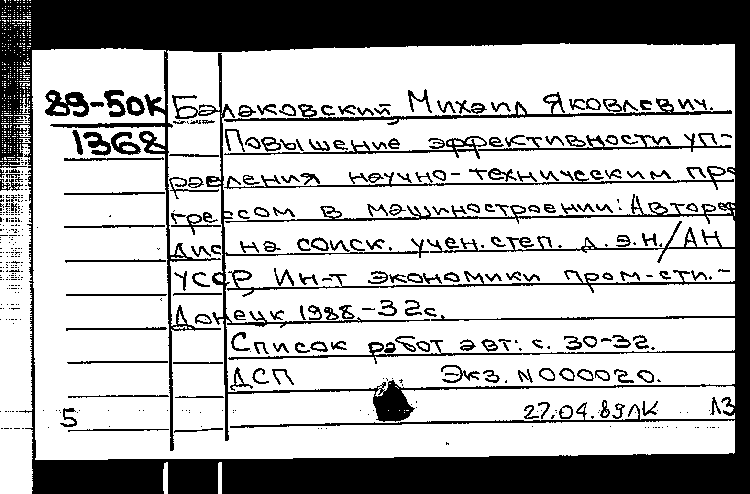 89-50К Балаковский, Михаил Яковлевич.
1368 Повышение эффективности уп-
равления научно-техническим про
грессом в машиностроении: Автореф
дис. на соиск. учен. степ. д.э.н./АН
УССР, Ин-т экономики пром-сти.-
Донецк, 1988.-32с.
Список работ авт: с. 30-32.
ДСП Экз. N000020.
5 27.04.89ЛК ЛЗ